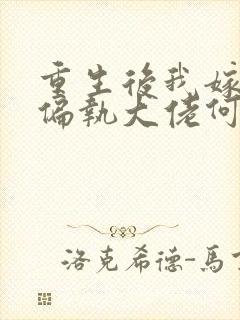 重生後我嫁
偏執大佬何
洛克希德-馬